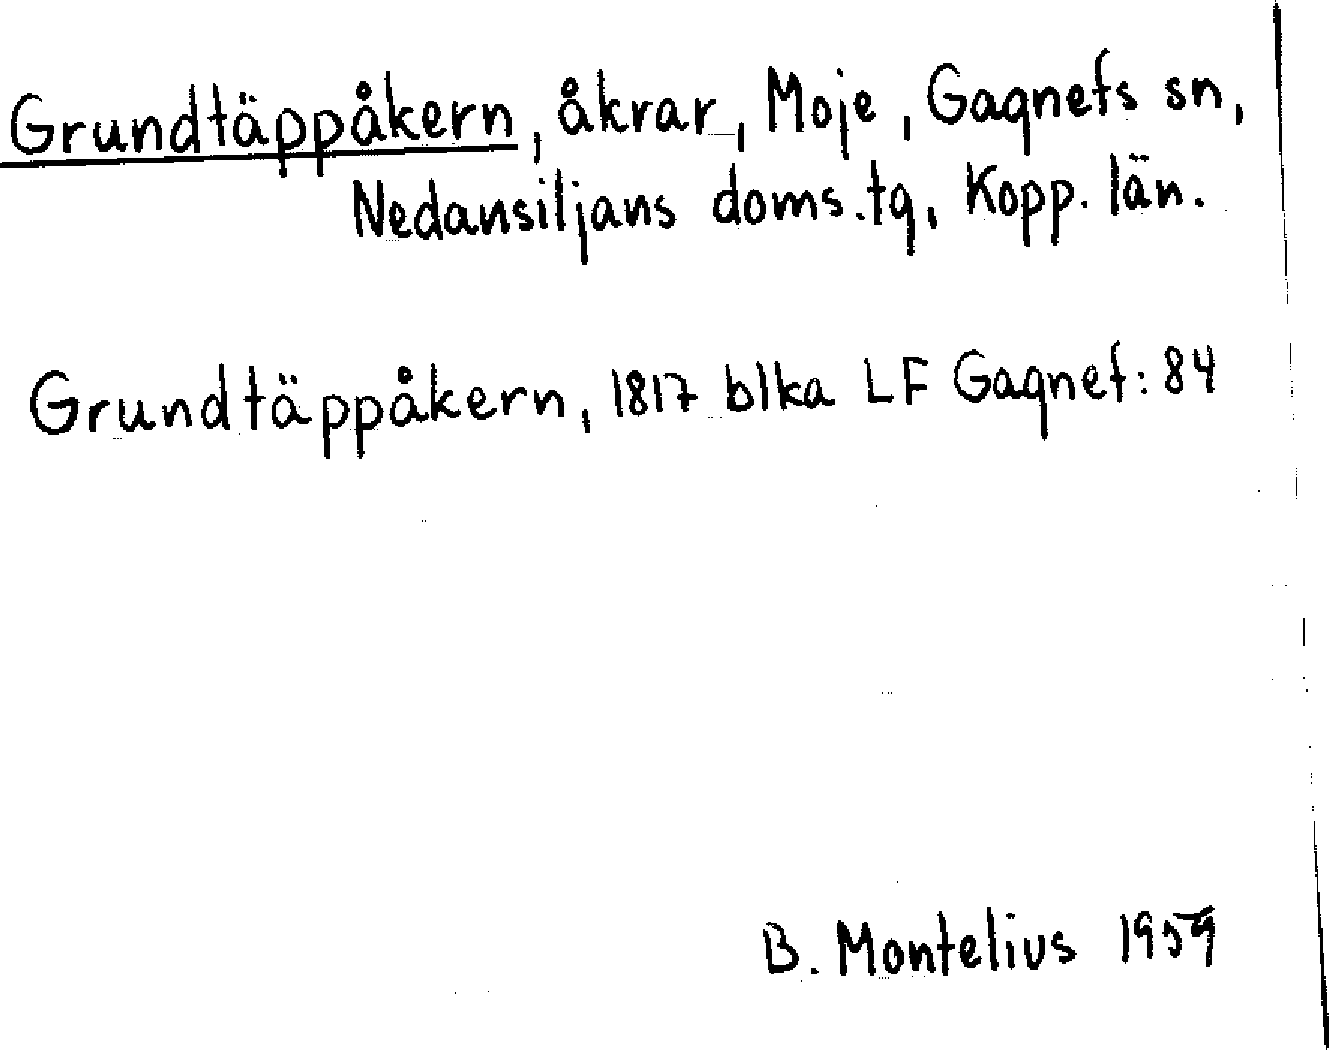 Grundtäppåkern, åkrar, Moje, Gagnefs sn,
Nedansiljans doms.tg, Kopp. län.
Grundtäppåkern, 1817 blka LF Gagnef: 84
B. Montelius 1959